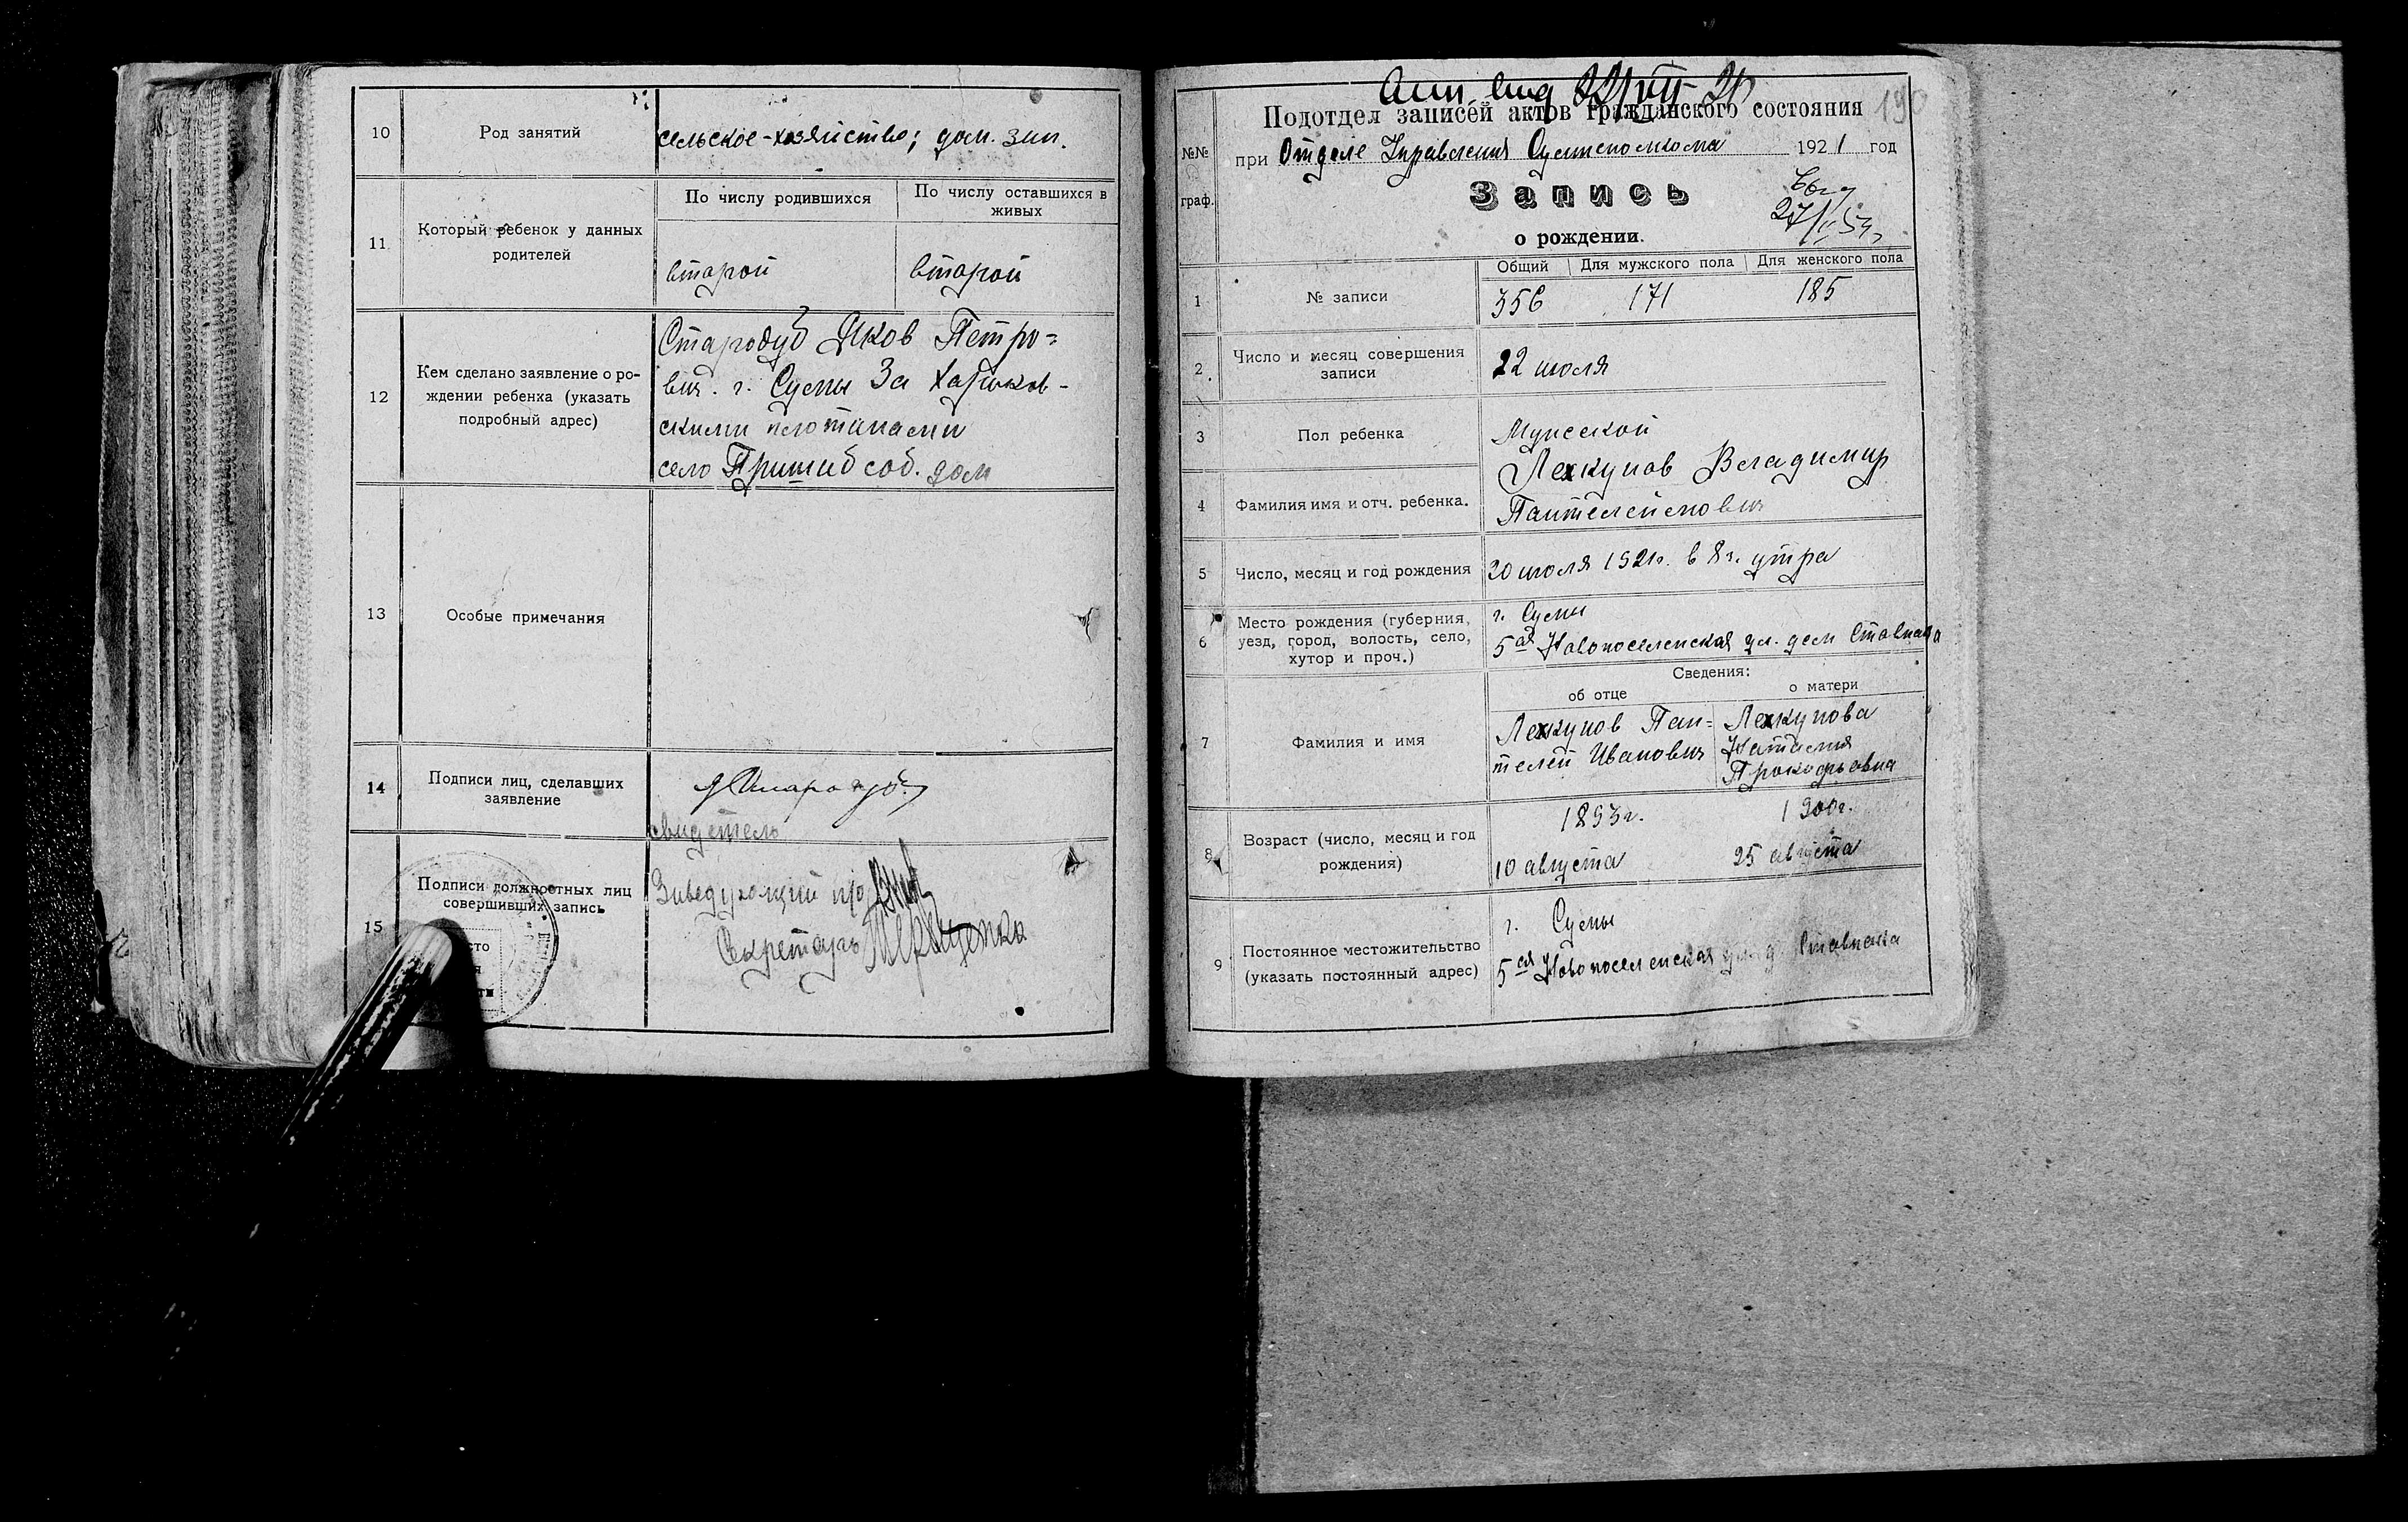 10
Род занятий
сельское-хозяйство; дом. зан.
11
Который ребенок у данных
родителей
По числу родившихся
По числу оставшихся в
живых
второй
второй
12
Кем сделано заявление о ро-
ждении ребенка (указать
подробный адрес)
Стародуб Яков Петро=
вич. г. Сумы За Харьков-
скими
село Пришиб соб. дом
13
Особые примечания
14
Подписи лиц, сделавших
заявление
Я Стародуб
свидетель
15
Подписи должностных лиц
совершивших запись
Заведующий п/о
Секретарь
190
Подотдел записей актов гражданского состояния
№№
граф.
при Отделе Управления 1921 год
Запись
о рождении.
Общий
Для мужского пола
Для женского пола
1
№ записи
356
171
185
2
Число и месяц совершения
записи
22 июля
3
Пол ребенка
Мужской
4
Фамилия имя и отч. ребенка.
Леккунов Владимир
Пантелеймович
5
Число, месяц и год рождения
20 июля 1921г. в 8ч. утра
6
Место рождения (губерния,
уезд, город, волость, село,
хутор и проч.)
г. Сумы
5ая Новопоселенская ул. дом
Сведения:
об отце
о матери
7
Фамилия и имя
Леккунов Пан=
телей Иванович
Леккунова
Наталия
Прокофьевна
8
Возраст (число, месяц и год
рождения)
1893г.
10 августа
1900г.
25 августа
9
Постоянное местожительство
(указать постоянный адрес)
г. Сумы
5ая Новопоселенская ул. д.